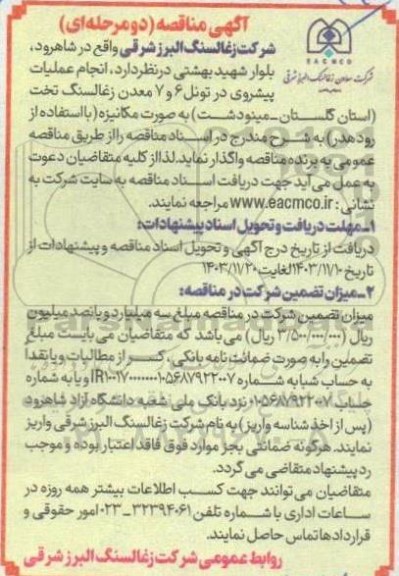 آگهی مناقصه (دو مرحله ای)
EACMCO
شرکت معادن زغالسنگ البرز شرقی
شرکت زغالسنگ البرز شرقی واقع در شاهرود،
بلوار شهید بهشتی در نظر دارد، انجام عملیات
پیشروی در تونل ۶ و ۷ معدن زغالسنگ تخت
(استان گلستان ـ مینودشت) به صورت مکانیزه (با استفاده از
رود هدر) به شرح مندرج در اسناد مناقصه را از طریق مناقصه
عمومی به برنده مناقصه واگذار نماید. لذا از کلیه متقاضیان دعوت
به عمل می آید جهت دریافت اسناد مناقصه به سایت شرکت به
نشانی: www.eacmco.ir مراجعه نمایند.
۱ـ مهلت دریافت و تحویل اسناد پیشنهادات:
دریافت از تاریخ درج آگهی و تحویل اسناد مناقصه و پیشنهادات از
تاریخ ۱۴۰۳/۱۱/۱۰ لغایت ۱۴۰۳/۱۱/۲۰
۲ـ میزان تضمین شرکت در مناقصه:
میزان تضمین شرکت در مناقصه مبلغ سه میلیارد و پانصد میلیون
ریال (۳/۵۰۰/۰۰۰/۰۰۰ ریال) می باشد که متقاضیان می بایست مبلغ
تضمین را به صورت ضمانت نامه بانکی، کسر از مطالبات و یا نقداً
به حساب شبا به شماره و یا به شماره
حساب ۰۱۰۵۶۸۷۹۲۲۰۰۷ نزد بانک ملی شعبه دانشگاه آزاد شاهرود
(پس از اخذ شناسه واریز) به نام شرکت زغالسنگ البرز شرقی واریز
نمایند. هرگونه ضمانتی بجز موارد فوق فاقد اعتبار بوده و موجب
رد پیشنهاد متقاضی می گردد.
متقاضیان می توانند جهت کسب اطلاعات بیشتر همه روزه در
ساعات اداری با شماره تلفن ۳۲۳۹۴۰۶۱-۰۲۳ امور حقوقی و
قراردادها تماس حاصل نمایند.
روابط عمومی شرکت زغالسنگ البرز شرقی